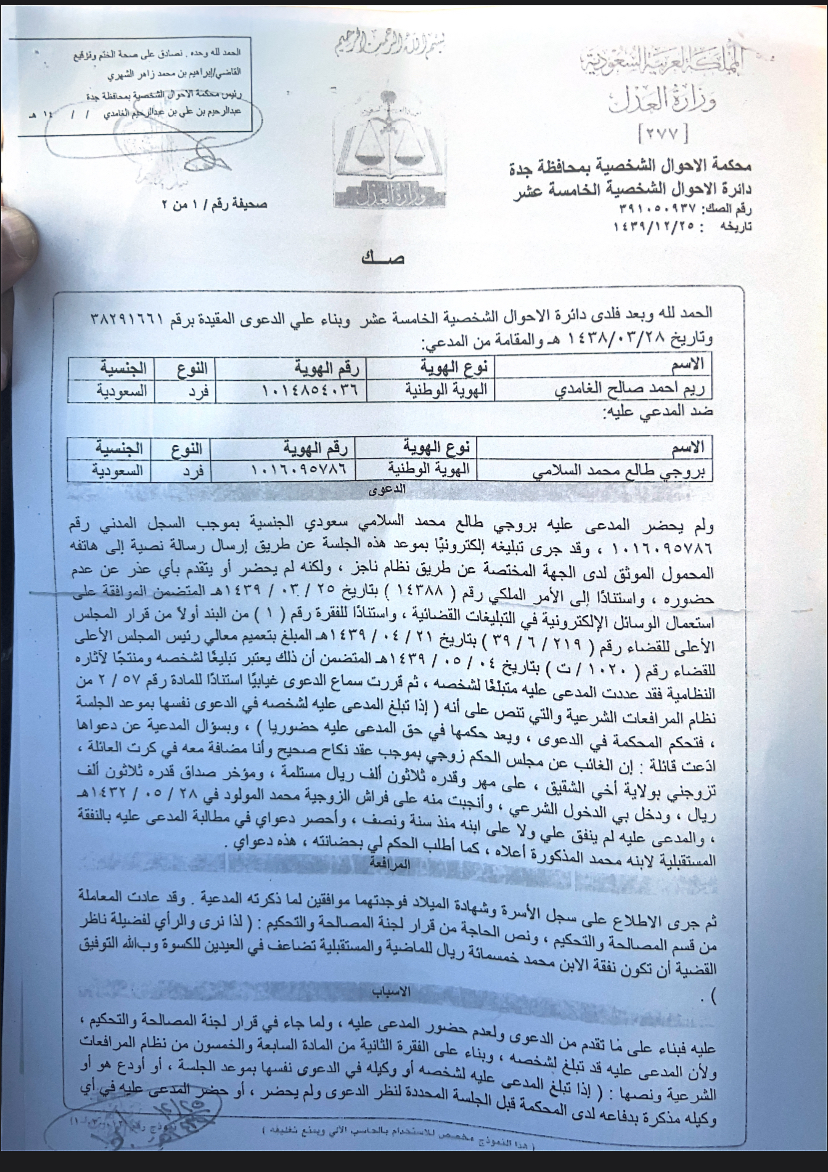 بسم الله الرحمن الرحيم
المملكة العربية السعودية
وزارة العدل
[٢٧٧]
محكمة الاحوال الشخصية بمحافظة جدة
دائرة الاحوال الشخصية الخامسة عشر
رقم الصك: ٣٩١٠٥٠٩٣٧
تاريخه : ١٤٣٩/١٢/٢٥
وزارة العدل
الحمد لله وحده . نصادق على صحة الختم وتوقيع
القاضي/إبراهيم بن محمد زاهر الشهري
رئيس محكمة الاحوال الشخصية بمحافظة جدة
عبدالرحيم بن علي بن عبدالرحيم الغامدي / / ١٤ هـ
صحيفة رقم / ١ من ٢
صـــك
الحمد لله وبعد فلدى دائرة الاحوال الشخصية الخامسة عشر وبناء علي الدعوى المقيدة برقم ٣٨٢٩١٦٦١
وتاريخ ١٤٣٨/٠٣/٢٨ هـ والمقامة من المدعي:
الاسم نوع الهوية رقم الهوية النوع الجنسية
ريم احمد صالح الغامدي الهوية الوطنية ١٠١٤٨٥٤٠٣٦ فرد السعودية
ضد المدعي عليه:
الاسم نوع الهوية رقم الهوية النوع الجنسية
بروجي طالع محمد السلامي الهوية الوطنية ١٠١٦٠٩٥٧٨٦ فرد السعودية
الدعوى
ولم يحضر المدعى عليه بروجي طالع محمد السلامي سعودي الجنسية بموجب السجل المدني رقم
١٠١٦٠٩٥٧٨٦ ، وقد جرى تبليغه إلكترونيًا بموعد هذه الجلسة عن طريق إرسال رسالة نصية إلى هاتفه
المحمول الموثق لدى الجهة المختصة عن طريق نظام ناجز ، ولكنه لم يحضر أو يتقدم بأي عذر عن عدم
حضوره ، واستنادًا إلى الأمر الملكي رقم ( ١٤٣٨٨ ) بتاريخ ٢٥ / ٠٣ / ١٤٣٩هـ المتضمن الموافقة على
استعمال الوسائل الإلكترونية في التبليغات القضائية ، واستنادًا للفقرة رقم ( ١ ) من البند أولاً من قرار المجلس
الأعلى للقضاء رقم ( ٢١٩ / ٦ / ٣٩ ) بتاريخ ٢١ / ٠٤ / ١٤٣٩هـ المبلغ بتعميم معالي رئيس المجلس الأعلى
للقضاء رقم ( ١٠٢٠ / ت ) بتاريخ ٠٤ / ٠٥ / ١٤٣٩هـ المتضمن أن ذلك يعتبر تبليغًا لشخصه ومنتجًا لآثاره
النظامية فقد عددت المدعى عليه متبلغًا لشخصه ، ثم قررت سماع الدعوى غيابيًا استنادًا للمادة رقم ٥٧ / ٢ من
نظام المرافعات الشرعية والتي تنص على أنه ( إذا تبلغ المدعى عليه لشخصه في الدعوى نفسها بموعد الجلسة
، فتحكم المحكمة في الدعوى ، ويعد حكمها في حق المدعى عليه حضوريا ) ، وبسؤال المدعية عن دعواها
ادّعت قائلة : إن الغائب عن مجلس الحكم زوجي بموجب عقد نكاح صحيح وأنا مضافة معه في كرت العائلة ،
تزوجني بولاية أخي الشقيق ، على مهر وقدره ثلاثون ألف ريال مستلمة ، ومؤخر صداق قدره ثلاثون ألف
ريال ، ودخل بي الدخول الشرعي ، وأنجبت منه على فراش الزوجية محمد المولود في ٢٨ / ٠٥ / ١٤٣٢هـ
، والمدعى عليه لم ينفق علي ولا على ابنه منذ سنة ونصف ، وأحصر دعواي في مطالبة المدعى عليه بالنفقة
المستقبلية لابنه محمد المذكورة أعلاه ، كما أطلب الحكم لي بحضانته ، هذه دعواي .
المرافعة
ثم جرى الاطلاع على سجل الأسرة وشهادة الميلاد فوجدتهما موافقين لما ذكرته المدعية . وقد عادت المعاملة
من قسم المصالحة والتحكيم ، ونص الحاجة من قرار لجنة المصالحة والتحكيم : ( لذا نرى والرأي لفضيلة ناظر
القضية أن تكون نفقة الابن محمد خمسمائة ريال للماضية والمستقبلية تضاعف في العيدين للكسوة وبالله التوفيق
) .
الاسباب
عليه فبناء على ما تقدم من الدعوى ولعدم حضور المدعى عليه ، ولما جاء في قرار لجنة المصالحة والتحكيم ،
ولأن المدعى عليه قد تبلغ لشخصه ، وبناء على الفقرة الثانية من المادة السابعة والخمسون من نظام المرافعات
الشرعية ونصها : ( إذا تبلغ المدعى عليه لشخصه أو وكيله في الدعوى نفسها بموعد الجلسة ، أو أودع هو أو
وكيله مذكرة بدفاعه لدى المحكمة قبل الجلسة المحددة لنظر الدعوى ولم يحضر ، أو حضر المدعى عليه في أي
( هذا النموذج مخصص للاستخدام بالحاسب الآلي ويمنع تغليفه )